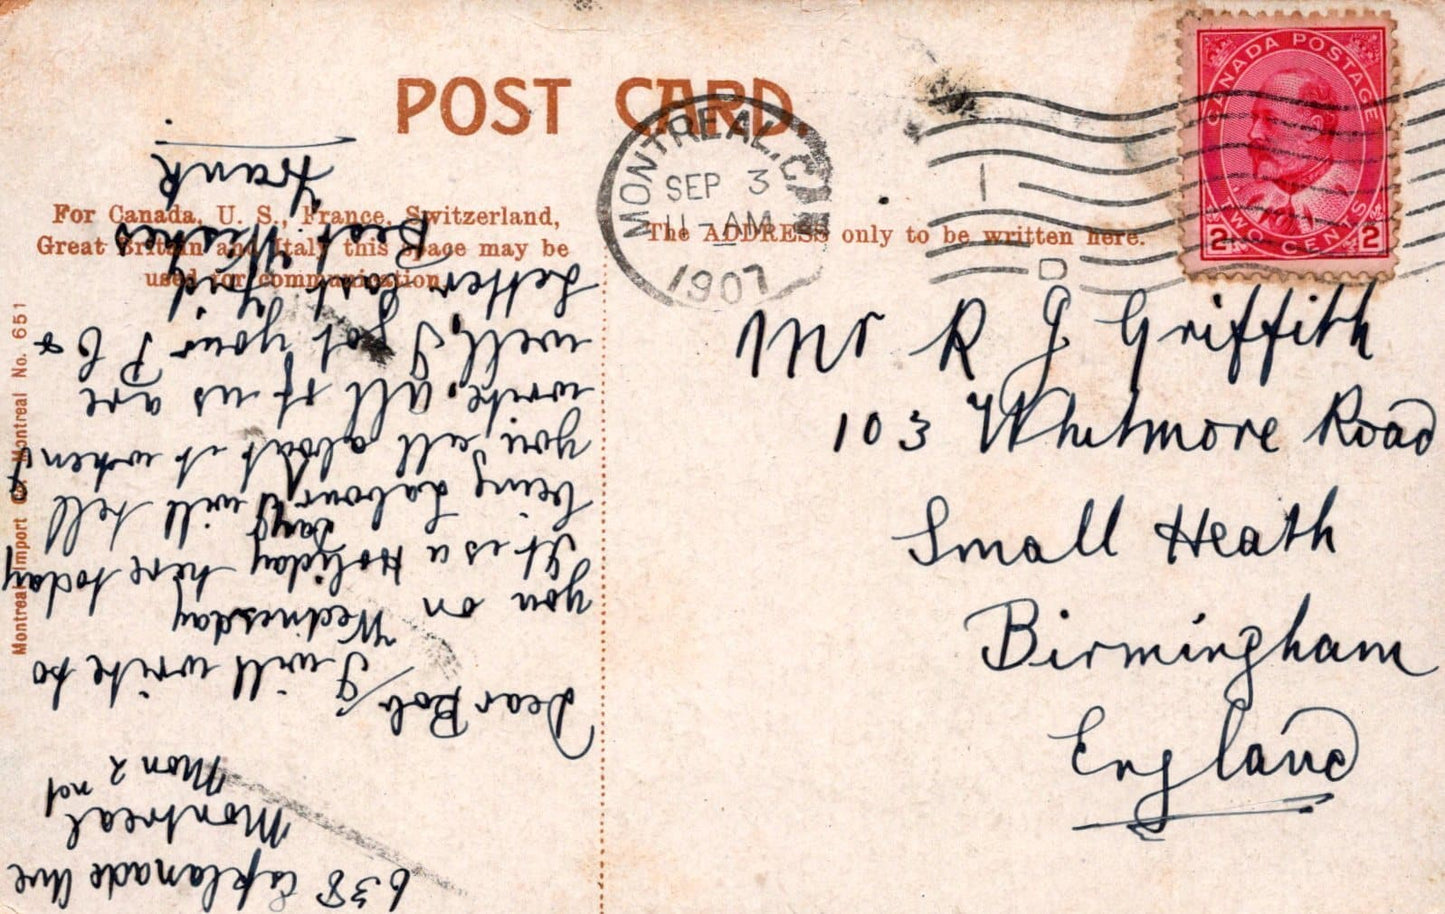 POST CARD.
For Canada, U. S., France, Switzerland,
Great Britain and Italy this space may be
used for communication.
The ADDRESS only to be written here.
Montreal Import Co. Montreal No. 651
CANADA POSTAGE
2 TWO CENTS 2
MONTREAL, CAN
SEP 3
11-AM
1907
1
D
Mr R J Griffith
103 Whitmore Road
Small Heath
Birmingham
England
638 Esplanade Ave
Montreal
Mon 2
Dear Bob/
I will write to
you on Wednesday
It is a Holiday here today
being Labour Day I will tell
you all about it when I
write, all of us are
well, I got your P C &
Letter last Frid
Best Wishes
Frank